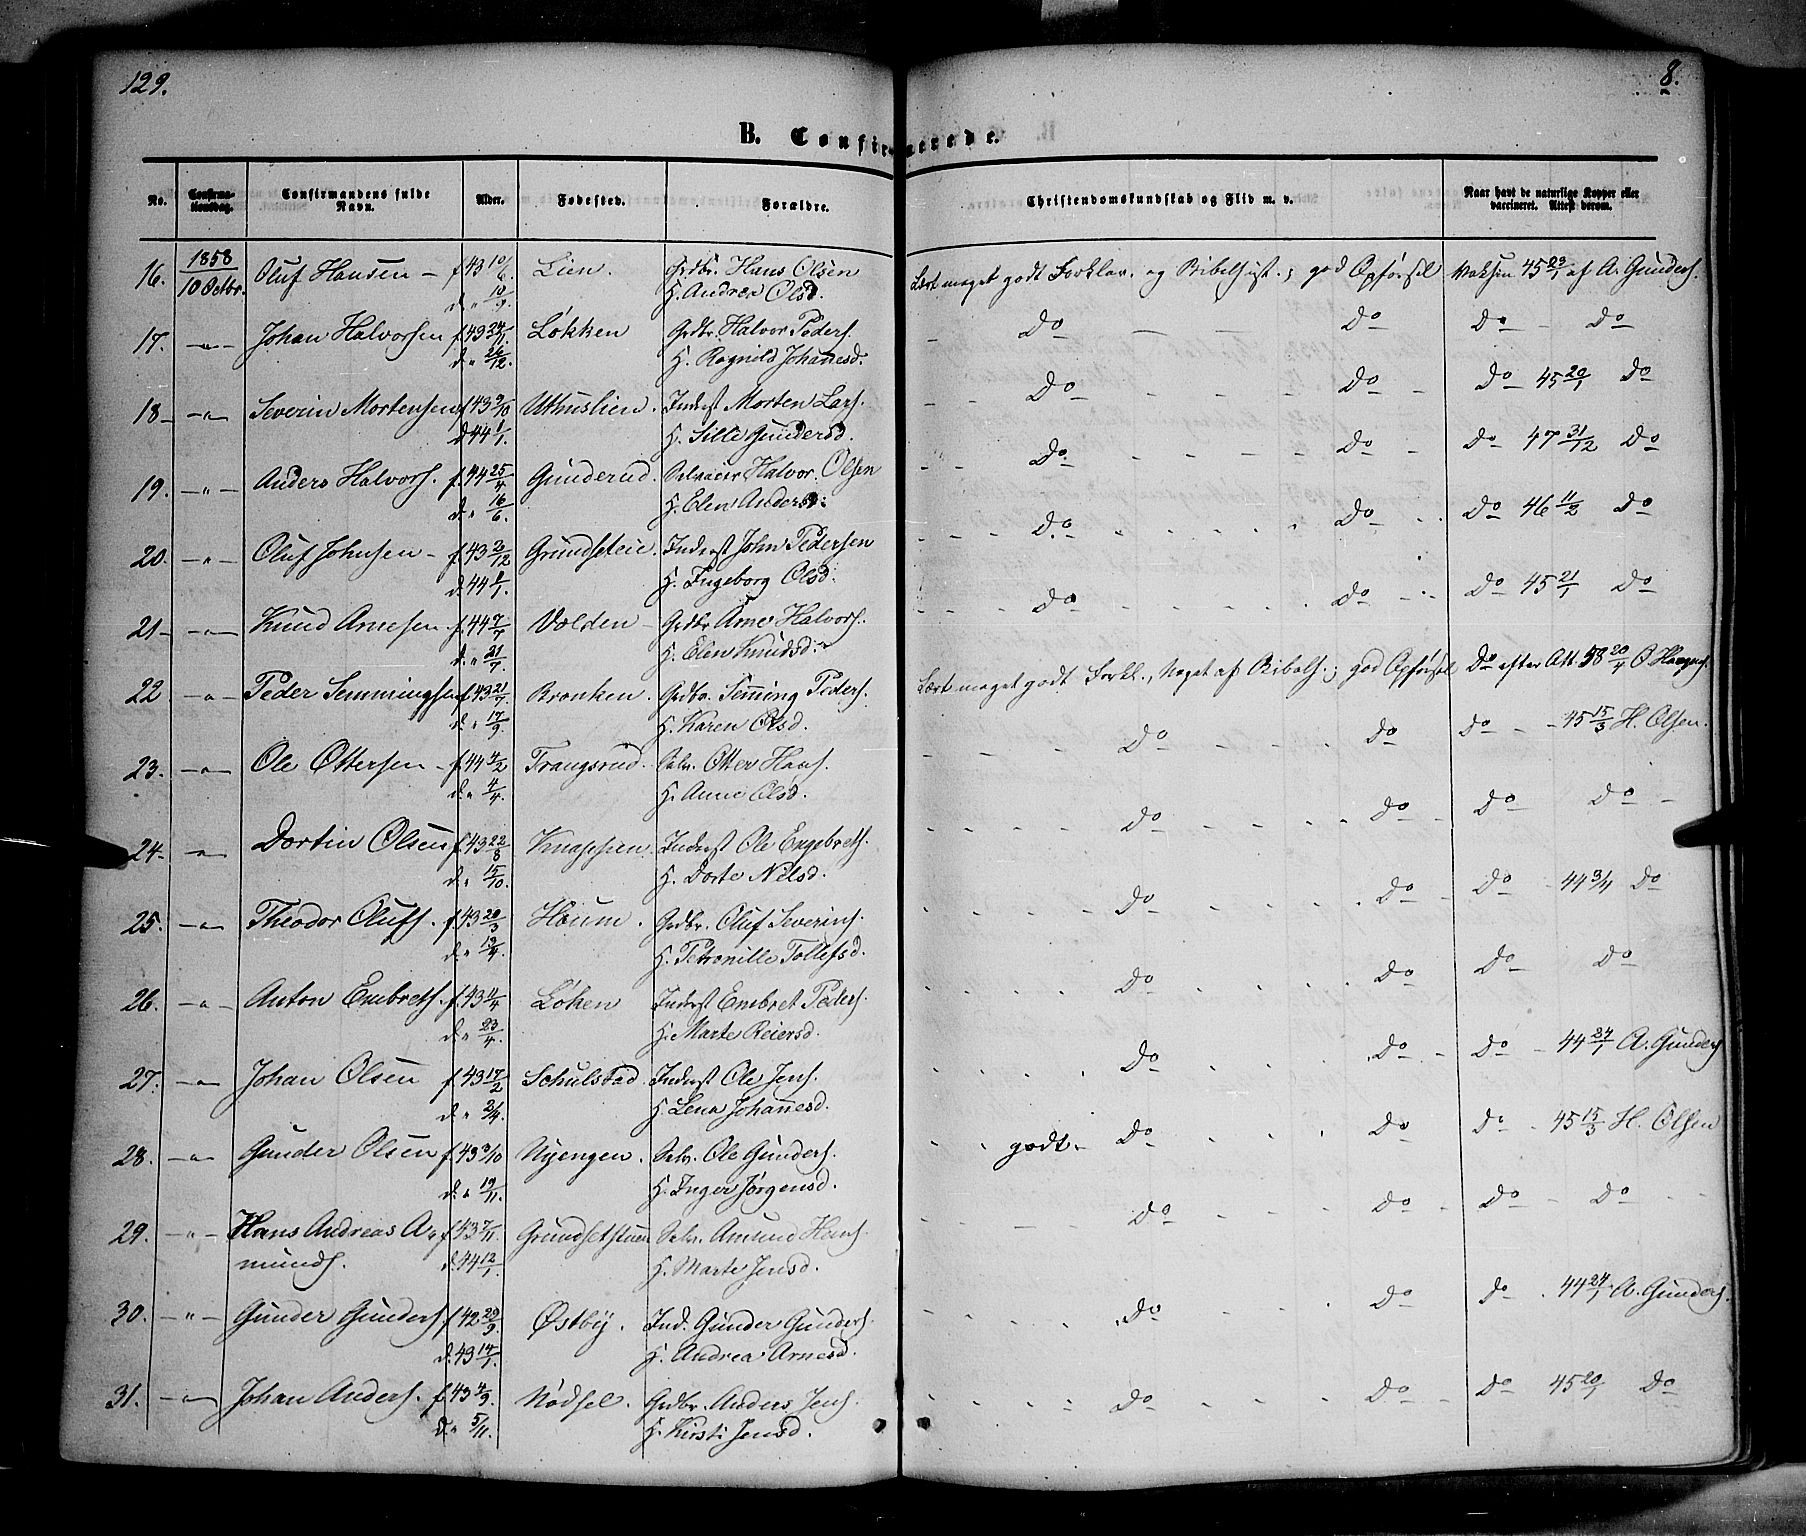 129.
8.
B. Confirmerede.
No.
Confirma-
tionsdag.
Confirmandens fulde
Navn.
Alder.
Fødested.
Forældre.
Christendomskundskab og Flid m. v.
Naar havt de naturlige Kopper eller
vaccineret. Attest derom.
16. 1858 10 Octbr. Oluf Hansen - f. 43 10/6 Lien. Grdbr. Hans Olsen Lært meget godt Forklar. og Bibelhist.; god Opførsel Vaksin 45 23/1 af A. Gunders.
d. " 10/9 H. Andrea Olsd.
17. -"- Johan Halvorsen f. 43 24/11 Løkken Grdbr. Halvor Peders. Do Do Do Do
d. " 26/12. H. Ragnild Johannesd.
18 -"- Severin Mortensen f. 43 9/10 Uthuslien. Inderst Morten Lars. Do Do Do 45 20/1 Do
d. 44 1/1. H. Sille Gundersd.
19. -"- Anders Halvors. f. 44 25/4 Gunderud. Selveier Halvor Olsen Do Do Do 47 31/12 Do
d. " 16/6. H. Elen Andersd.
20. -"- Oluf Johnsen - f. 43 2/12 Grundseteie. Inderst John Pedersen Do Do Do 46 11/2 Do
d. 44 1/1. H. Ingeborg Olsd.
21 -"- Knud Arnesen f. 44 7/7 Volden Grdbr Arne Halvors. Do Do Do 45 21/1 Do
d. " 21/7. H. Elen Knudsd.
22 -"- Peder Semmingsen f. 43 21/7 Bronken. Grdbr. Semming Peders. Lært meget godt Forkl., Noget af Bibelh.; god Opførsel Do efter Att. 58 20/4 O. Haagens.
d. " 17/9. H. Karen Olsd.
23. -"- Ole Ottersen - f. 44 4/2 Trangsrud. Selv. Otter Hans. Do Do Do 45 15/3 H. Olsen.
d. " 4/4. H. Anne Olsd.
24. -"- Dortin Olsen f. 43 22/8 Knappen. Inderst Ole Engebreth. Do Do Do Do
d. " 15/10. H. Dorte Nilsd.
25. -"- Theodor Olufs. f. 43 20/3 Houm. Grdbr. Oluf Severins. Do Do Do 44 3/4 Do
d. " 13/4. H. Petronille Tollefsd.
26. -"- Anton Embreths. f. 43 4/4 Løken Inderst Embret Peders. Do Do Do Do
d. " 23/4. H. Marte Reiersd.
27. -"- Johan Olsen f. 43 17/2 Schulstad. Inderst Ole Jens. Do Do Do 44 24/1 A. Gunders
d. " 2/4. H. Lena Johannesd.
28. -"- Gunder Olsen f. 43 3/10 Nyengen. Selv. Ole Gunders. godt. Do Do Do 45 15/3 H. Olsen
d. " 19/11. H. Inger Jørgensd.
29. -"- Hans Andreas A- f. 43 7/11. Grundsetstuen Selv. Amund Hans. Do Do Do Do
munds. d. 44 12/1. H. Marte Jensd.
30. -"- Gunder Gunders. f. 42 29/9. Østby. Ind. Gunder Gunders. Do Do Do 44 24/1 A. Gunders.
d. 43 14/1. H. Andrea Arnesd.
31. -"- Johan Anders. f. 43 4/9. Nødsel. Grdbr. Anders Jens. Do Do Do 45 20/1 Do
D. " 5/11. H. Kirsti Jensd.